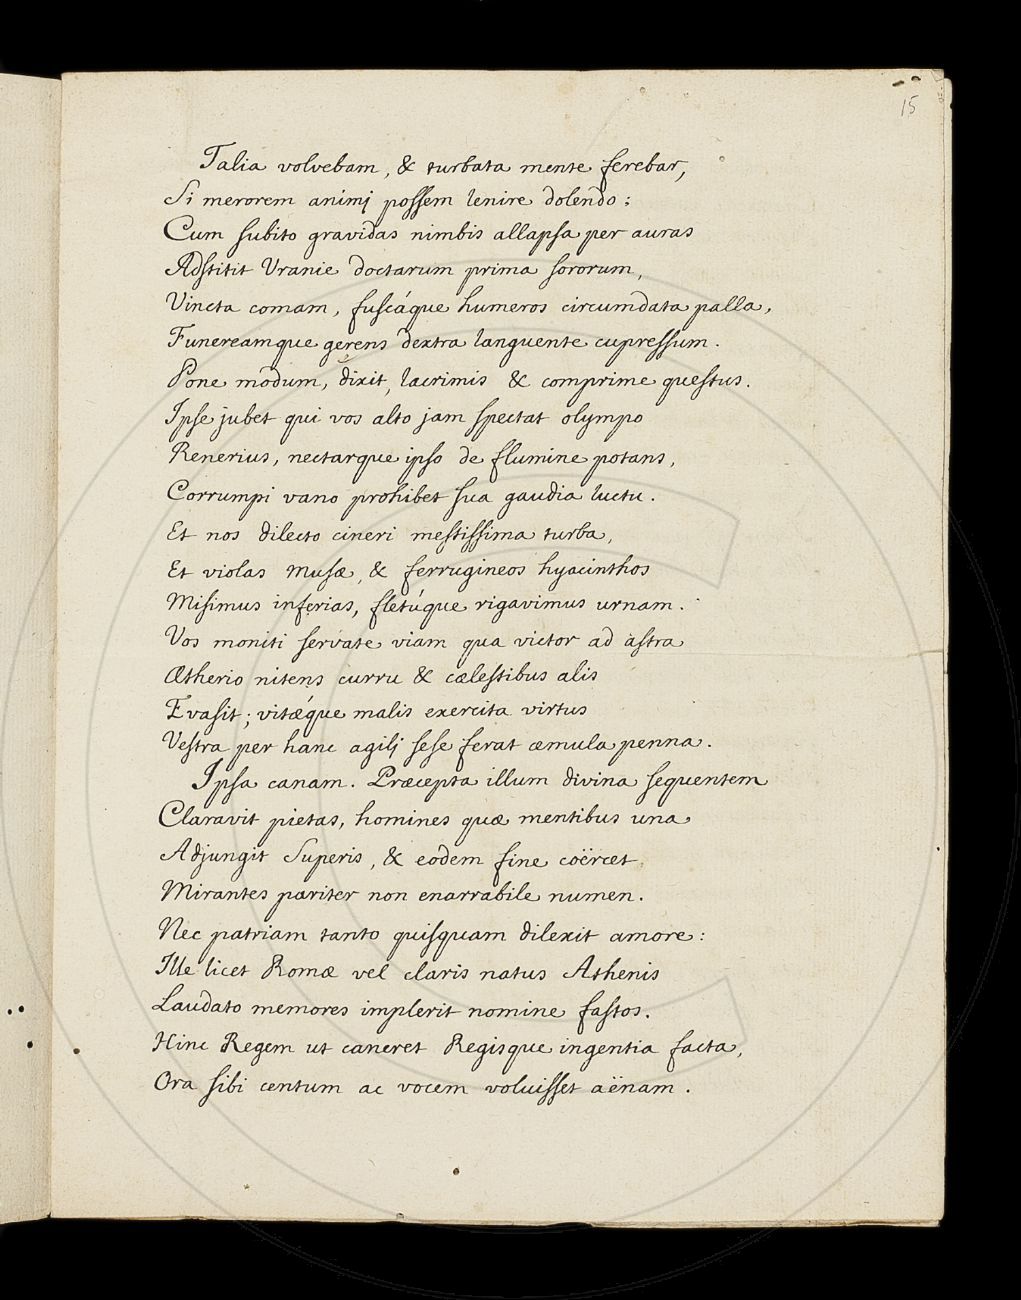 15
Talia volvebam, & turbata mente ferebar,
Si merorem animi possem lenire dolendo;
Cum subito gravidas nimbis allapsa per auras
Adstitit Uranie doctarum prima sororum,
Vincta comam, fuscáque humeros circumdata palla,
Funereamque gerens dextra languente cupressum.
Pone modum, dixit, lacrimis & comprime questus.
Ipse jubet qui vos alto jam spectat olympo
Renerius, nectarque ipso de flumine potans,
Corrumpi vano prohibet sua gaudia luctu.
Et nos dilecto cineri mestissima turba,
Et violas Musæ, & ferrugineos hyacinthos
Misimus inferias, fletúque rigavimus urnam.
Vos moniti servate viam qua victor ad astra
Ætherio nitens curru & cælestibus alis
Evasit; vitæque malis exercita virtus
Vestra per hanc agili sese ferat æmula penna.
Ipsa canam. Præcepta illum divina sequentem
Claravit pietas, homines quæ mentibus una
Adjungit Superis, & eodem fine coërcet
Mirantes pariter non enarrabile numen.
Nec patriam tanto quisquam dilexit amore:
Ille licet Romæ vel claris natus Athenis
Laudato memores implerit nomine fastos.
Hinc Regem ut caneret Regisque ingentia facta,
Ora sibi centum ac vocem voluisset aënam.